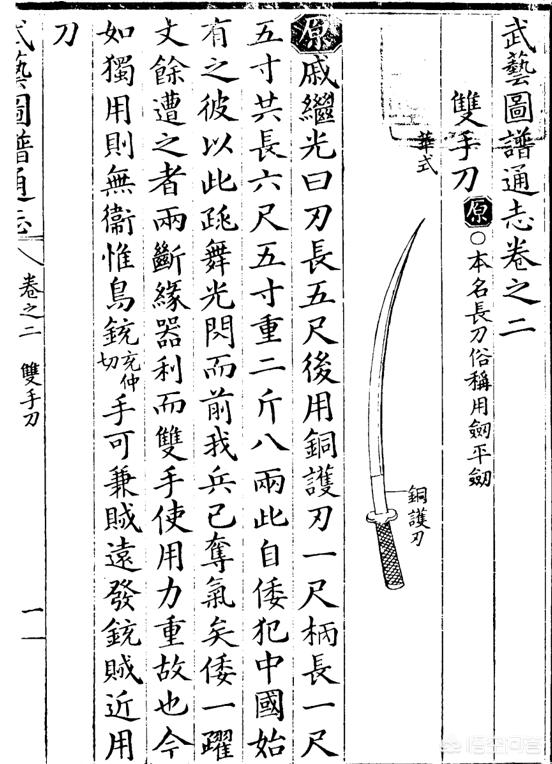 武藝圖譜通志卷之二
雙手刀 原 ○本名長刀俗稱用劒平劒
華式
銅護刃
原 戚繼光曰刃長五尺後用銅護刃一尺柄長一尺
五寸共長六尺五寸重二斤八兩此自倭犯中國始
有之彼以此跳舞光閃而前我兵已奪氣矣倭一躍
丈餘遭之者兩斷緣器利而雙手使用力重故也今
如獨用則無衞惟鳥銃充仲切手可兼賊遠發銃賊近用
刀
武藝圖譜通志 卷之二 雙手刀 一
悟空问答